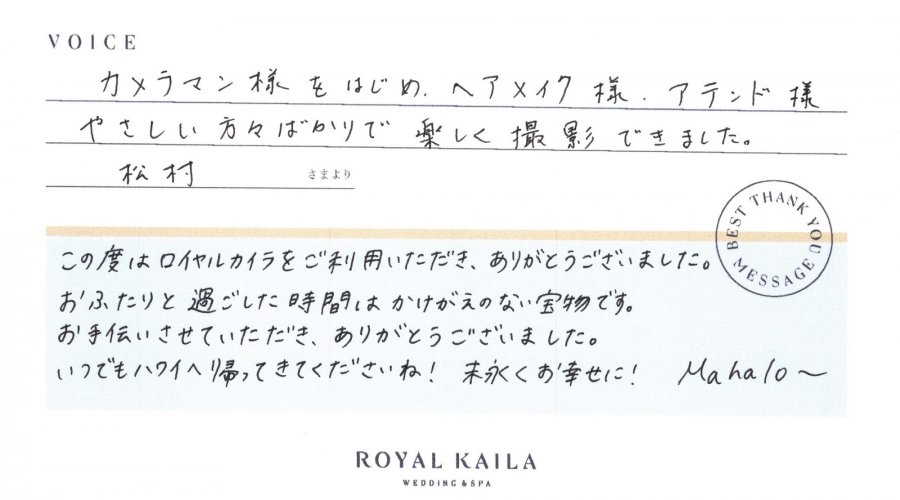 VOICE
カメラマン様をはじめ、ヘアメイク様、アテンド様
やさしい方々ばかりで楽しく撮影できました。
松村 さまより
BEST THANK YOU MESSAGE
この度はロイヤルカイラをご利用いただき、ありがとうございました。
おふたりと過ごした時間はかけがえのない宝物です。
お手伝いさせていただき、ありがとうございました。
いつでもハワイへ帰ってきてくださいね！ 末永くお幸せに！ Mahalo〜
ROYAL KAILA
WEDDING & SPA